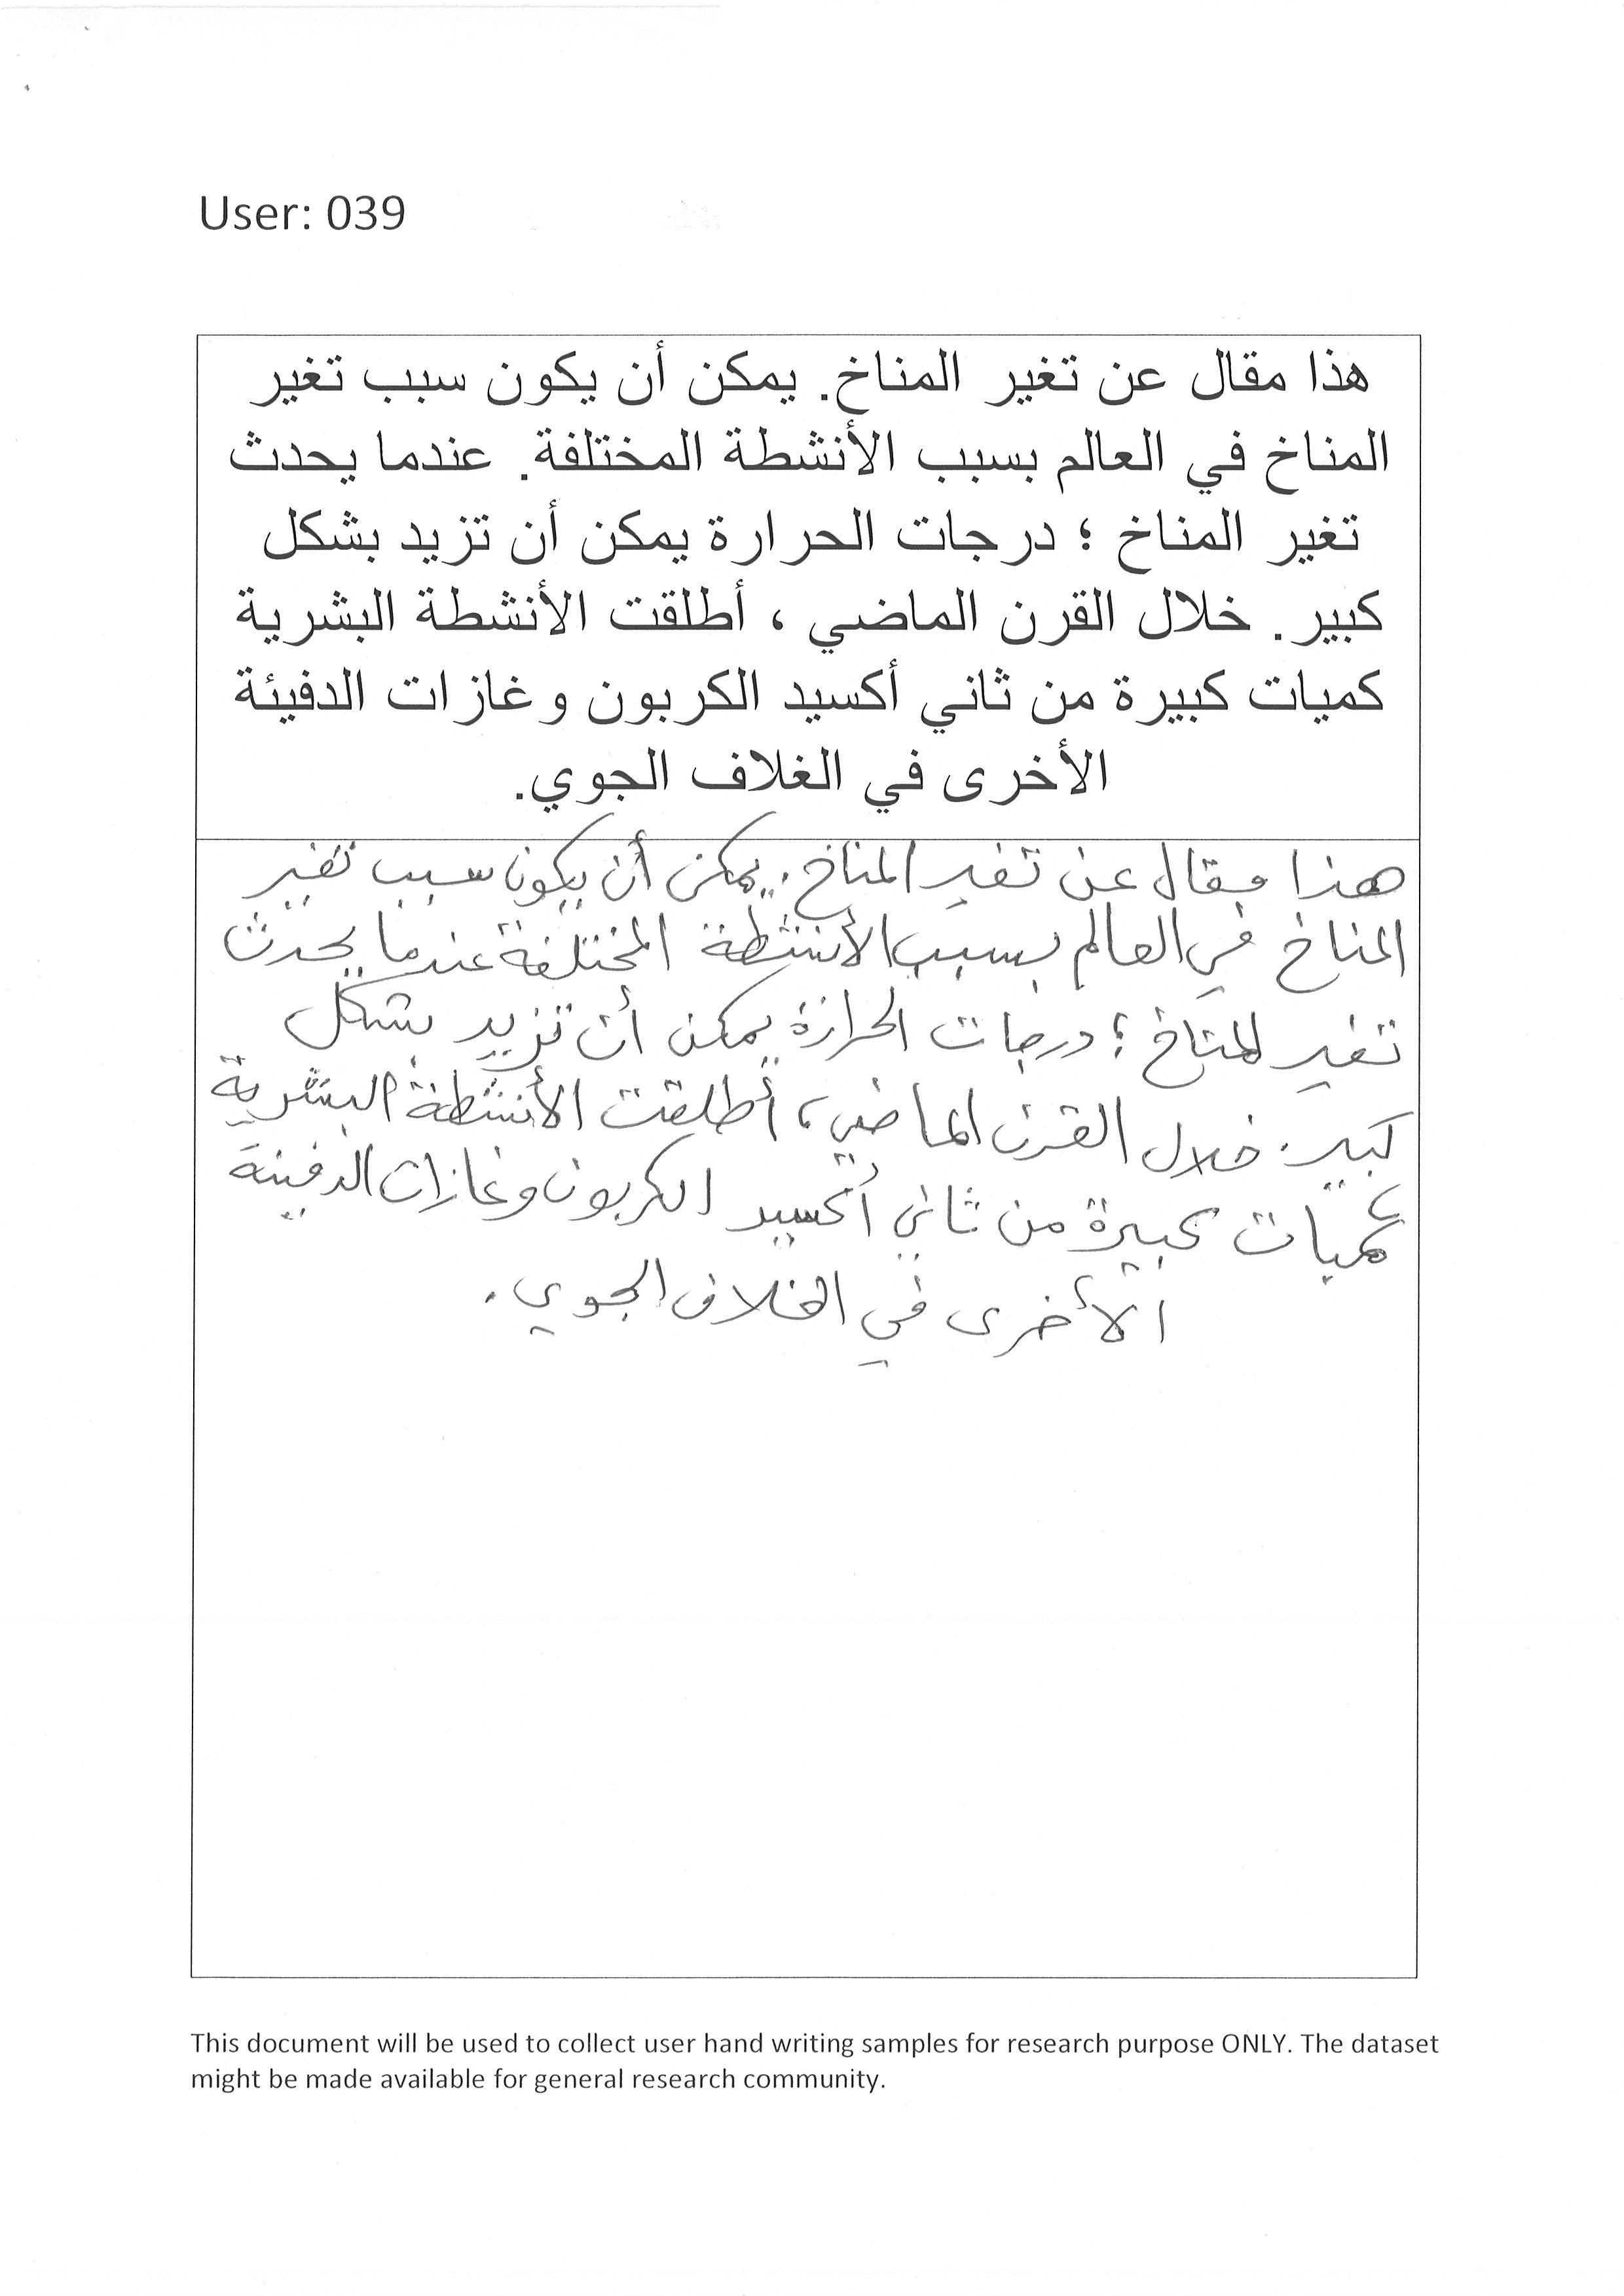 User: 039
هذا مقال عن تغير المناخ. يمكن أن يكون سبب تغير
المناخ في العالم بسبب الأنشطة المختلفة. عندما يحدث
تغير المناخ ؛ درجات الحرارة يمكن أن تزيد بشكل
كبير. خلال القرن الماضي ، أطلقت الأنشطة البشرية
كميات كبيرة من ثاني أكسيد الكربون وغازات الدفيئة
الأخرى في الغلاف الجوي.
هذا مقال عن تغير المناخ. يمكن أن يكون سبب تغير
المناخ في العالم بسبب الأنشطة المختلفة عندما يحدث
تغير المناخ ؛ درجات الحرارة يمكن أن تزيد بشكل
كبير. خلال القرن الماضي ، أطلقت الأنشطة البشرية
كميات كبيرة من ثاني أكسيد الكربون وغازات الدفينة
الأخرى في الغلاف الجوي.
This document will be used to collect user hand writing samples for research purpose ONLY. The dataset
might be made available for general research community.